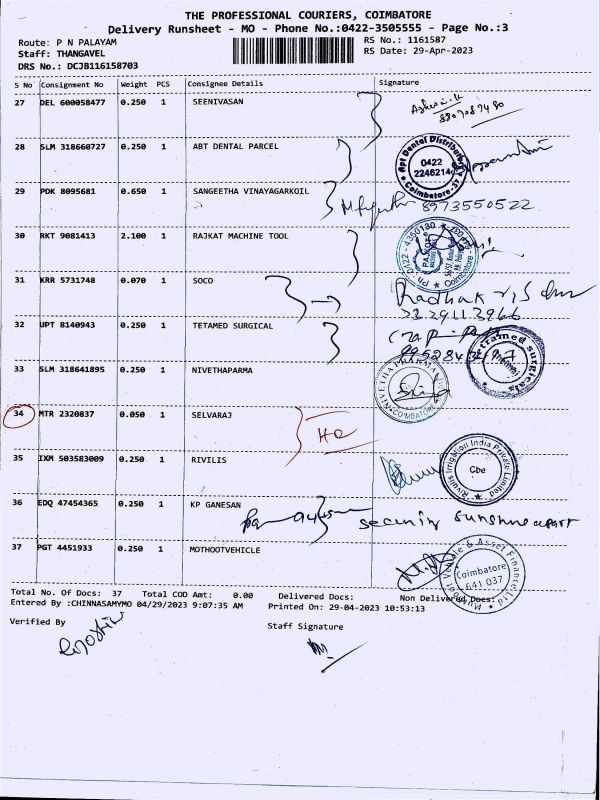 THE PROFESSIONAL COURIERS, COIMBATORE
Delivery Runsheet - MO - Phone No.:0422-3505555 - Page No.:3
Route: P N PALAYAM
RS No.: 1161587
Staff: THANGAVEL
RS Date: 29-Apr-2023
DRS No.: DCJB116158703
S No Consignment No Weight PCS Consignee Details Signature
27 DEL 600058477 0.250 1 SEENIVASAN
28 SLM 318660727 0.250 1 ABT DENTAL PARCEL
Apt Dental Distributor 0422 2246214 Coimbatore-37
29 PDK 8095681 0.650 1 SANGEETHA VINAYAGARKOIL
8973550522
30 RKT 9081413 2.100 1 RAJKAT MACHINE TOOL
PH: 0422 - 4350130
Coimbatore
31 KRR 5731748 0.070 1 SOCO
32 UPT 8140943 0.250 1 TETAMED SURGICAL
33 SLM 318641895 0.250 1 NIVETHAPARMA
COIMBATORE
34 MTR 2320837 0.050 1 SELVARAJ
35 IXM 503583009 0.250 1 RIVILIS
Rivulis Irrigation India Private Limited Cbe
36 EDQ 47454365 0.250 1 KP GANESAN
security sunshine apart
37 PGT 4451933 0.250 1 MOTHOOTVEHICLE
Vehicle & Asset Finance Ltd Coimbatore 641 037
Total No. Of Docs: 37 Total COD Amt: 0.00 Delivered Docs: Non Delivered Docs:
Entered By :CHINNASAMYMO 04/29/2023 9:07:35 AM Printed On: 29-04-2023 10:53:13
Verified By
Staff Signature